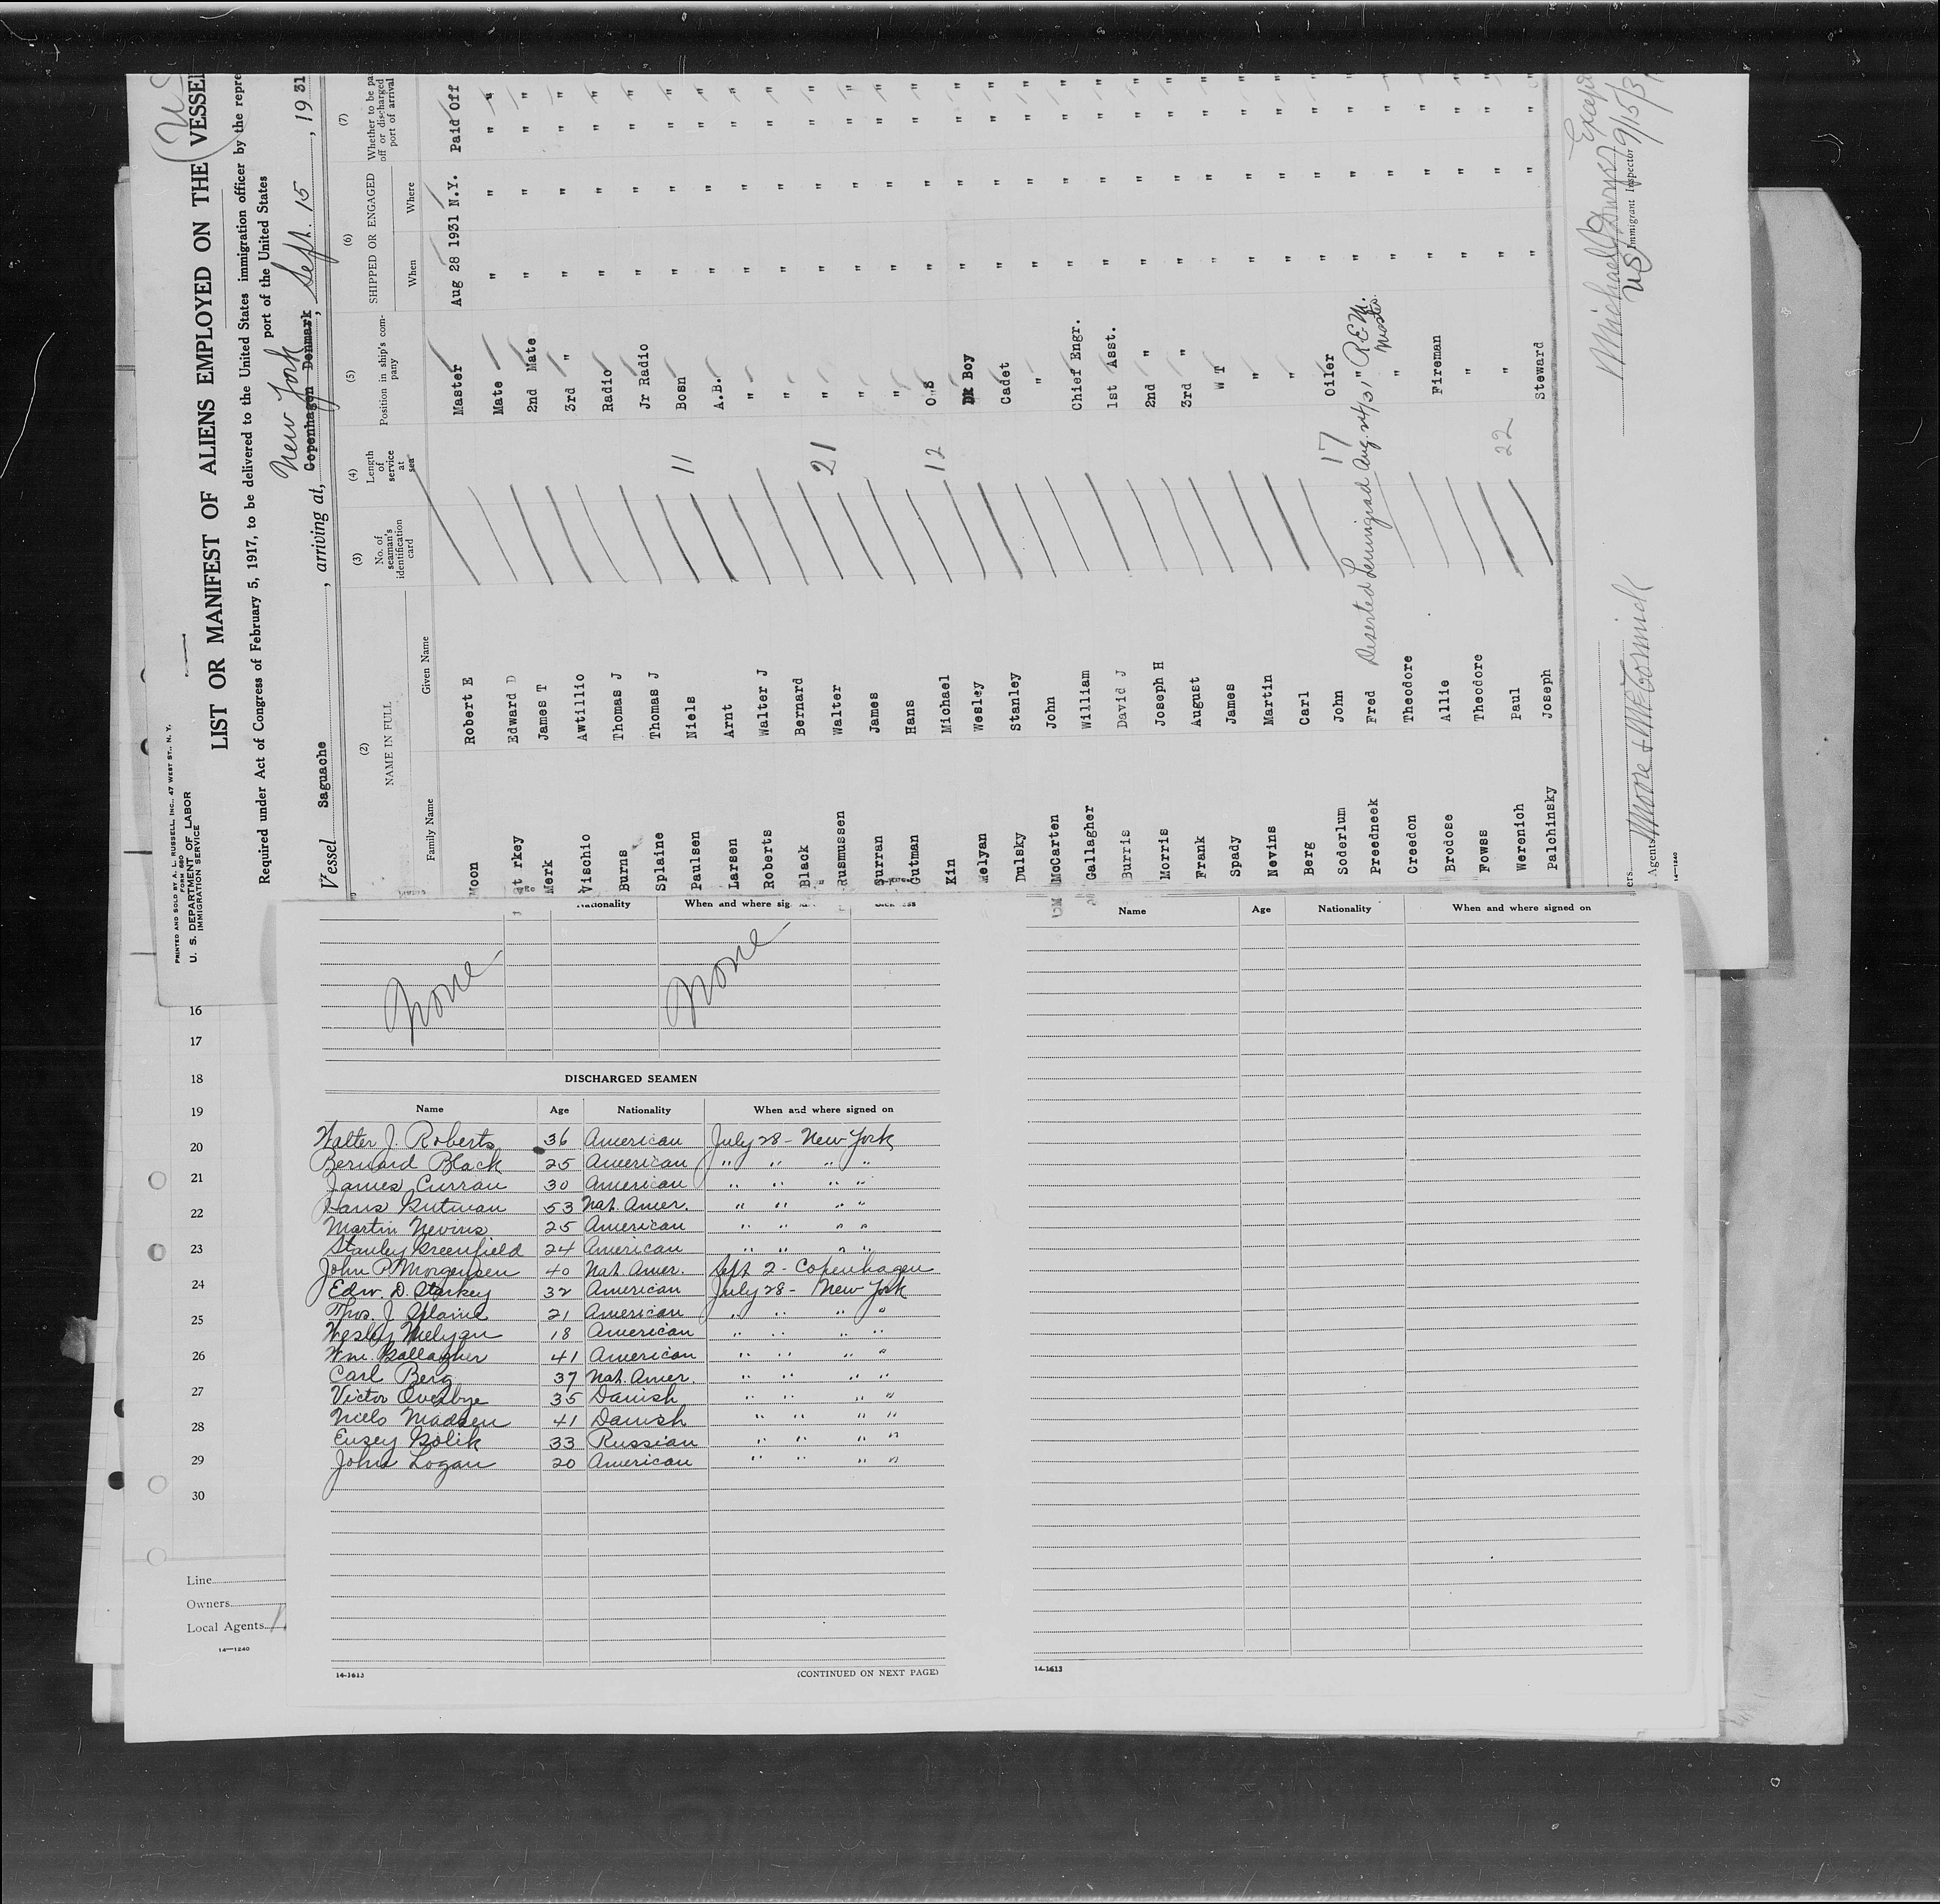 PRINTED AND SOLD BY A. L. RUSSELL, INC., 47 WEST ST., N. Y.
FORM 680
U. S. DEPARTMENT OF LABOR
IMMIGRATION SERVICE
LIST OR MANIFEST OF ALIENS EMPLOYED ON THE VESSEL
Required under Act of Congress of February 5, 1917, to be delivered to the United States immigration officer by the repre
port of the United States
New York
Vessel Saguache, arriving at, Copenhagen Denmark, Sept. 15, 1931
(2) (3) (4) (5) (6) (7)
NAME IN FULL No. of seaman's identification card Length of service at sea Position in ship's company SHIPPED OR ENGAGED Whether to be pa off or discharged port of arrival
Family Name Given Name When Where
Moon Robert E Master Aug 28 1931 N.Y. Paid Off
Starkey Edward D Mate " " " "
Merk James T 2nd Mate " " " "
Vischio Awtillio 3rd " " " " "
Burns Thomas J Radio " " " "
Splaine Thomas J Jr Radio " " " "
Paulsen Niels 11 Bosn " " " "
Larsen Arnt A.B. " " " "
Roberts Walter J " " " " "
Black Bernard " " " " "
Rusmussen Walter 21 " " " " "
Curran James " " " " "
Gutman Hans " " " " "
Kin Michael 12 O.S " " " "
Welyan Wesley Boy " " " "
Dulsky Stanley Cadet " " " "
McCarten John " " " " "
Gallagher William Chief Engr. " " " "
Burris David J 1st Asst. " " " "
Morris Joseph H 2nd " " " " "
Frank August 3rd " " " " "
Spady James W T " " " "
Nevins Martin " " " " "
Berg Carl " " " " "
Soderlum John 17 Oiler " " " "
Freedneek Fred Deserted Leningrad Aug. 24/31 " R.E.M. Master " " " "
Creedon Theodore " " " " "
Brodose Allie Fireman " " " "
Fowss Theodore " " " " "
Werenich Paul 22 " " " " "
Palchinsky Joseph Steward " " " "
Agents Moore & McCormick
US Immigrant Inspector 9/15/31
14—1240
16
17
18
19
20
21
22
23
24
25
26
27
28
29
30
Line
Owners
Local Agents
14—1240
Nationality When and where sig
None None
DISCHARGED SEAMEN
Name Age Nationality When and where signed on
Walter J. Roberts 36 American July 28 - New York
Bernard Black 25 American " " " "
James Curran 30 American " " " "
Hans Gutman 53 Nat. Amer. " " " "
Martin Nevins 25 American " " " "
Stanley Greenfield 24 American " " " "
John P. Morgensen 40 Nat. Amer. Sept 2 - Copenhagen
Edw. D. Starkey 32 American July 28 - New York
Thos. J. Splaine 21 American " " " "
Wesley Wielygn 18 American " " " "
Wm. Gallagher 41 American " " " "
Carl Berg 37 Nat. Amer. " " " "
Victor Overbye 35 Danish " " " "
Niels Madsen 41 Danish " " " "
Golik 33 Russian " " " "
John Logan 20 American " " " "
14-1613 (CONTINUED ON NEXT PAGE)
Name Age Nationality When and where signed on
14-1613